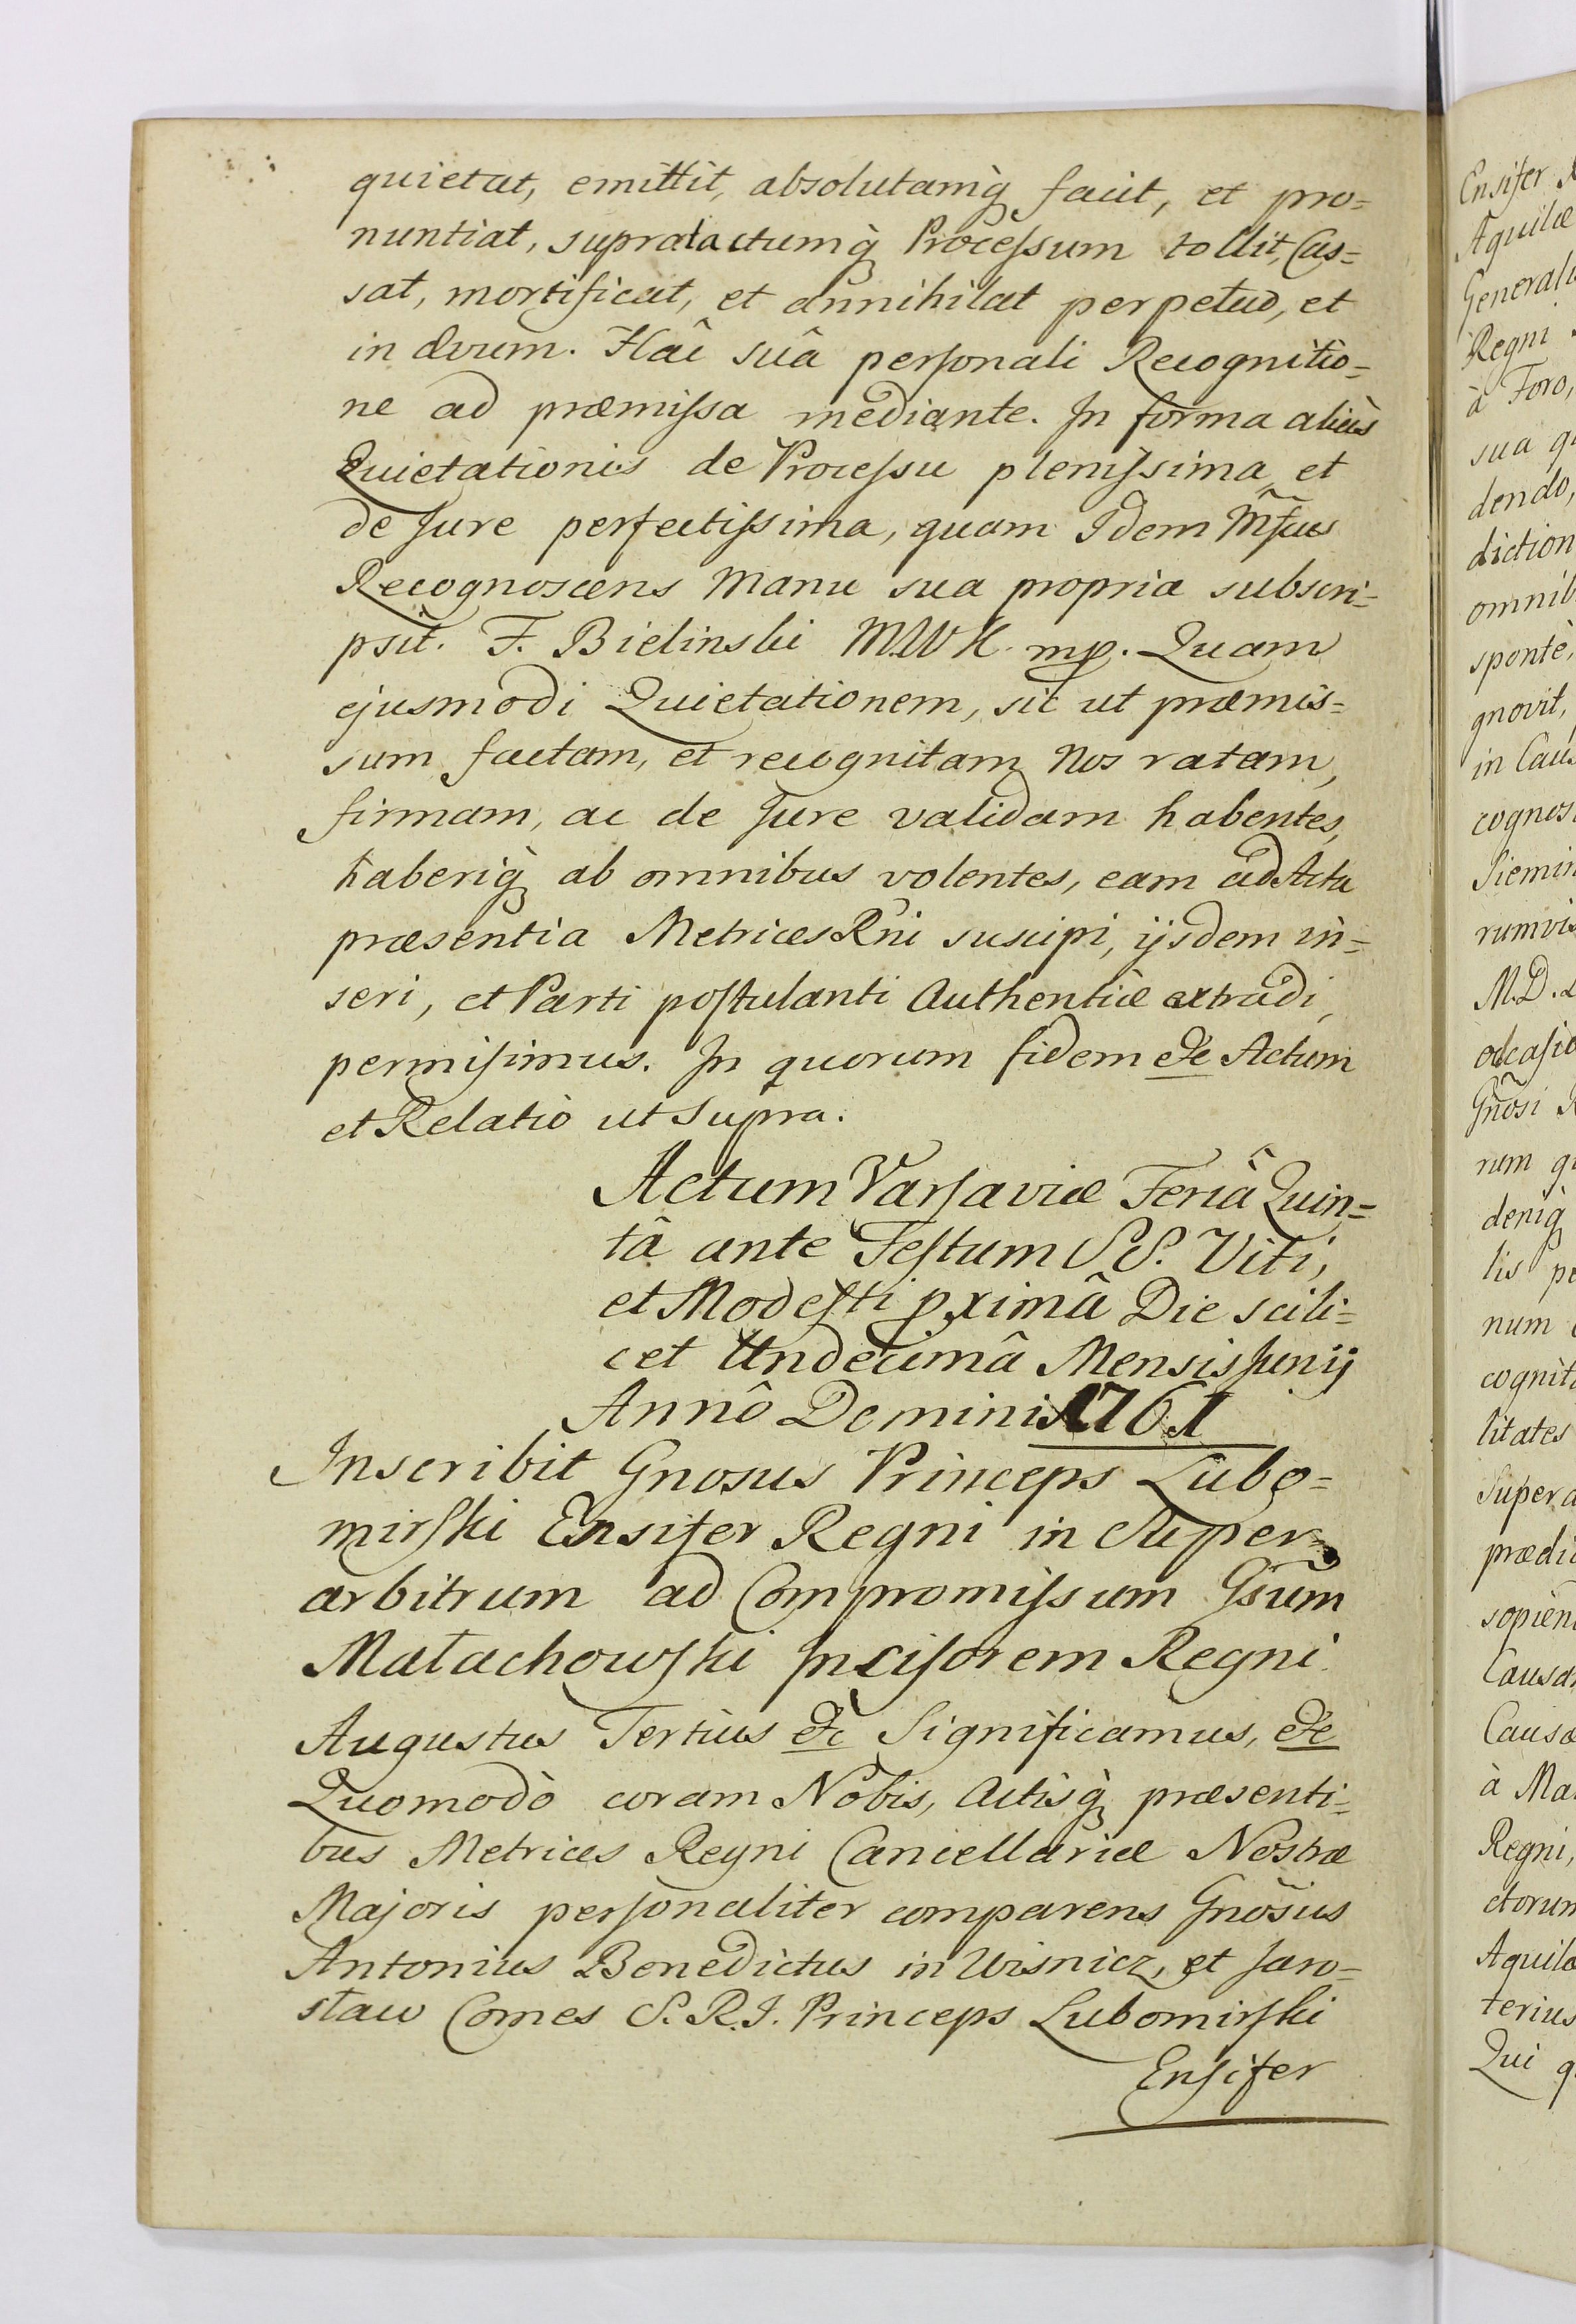 quietat, emittit, absolutamq̀ꝫ facit, et pro=
nuntiat, supratactumq̀ꝫ Proceſsum tollit, Cas=
sat, mortificat, et annihilat perpetuò, et
in ævum. Hâc suâ perſonali Recognitio=
ne ad præmiſsa mediante. In forma aliàs
Quietationis de Proceſsu pleniſsima et
de Jure perfectiſsima, quam Idem Mſ̃cus
Recognoscens Manu sua propria subscri=
psit. F. Bielinski M.W.K. mp. Quam
ejusmodi Quietationem, sic ut præmis=
sum factam, et recognitam Nos ratam,
firmam, ac de Jure validam habentes,
haberiq̀ꝫ ab omnibus volentes, eam ad Acta
præsentia Metrices Rñi suscipi, ijsdem in=
seri, et Parti poſtulanti Authenticè extradi,
permiſimus. In quorum fidem &c Actum
et Relatio ut supra.
Actum Varſaviæ Feriâ Quin=
tâ ante Feſtum S.S. Viti,
et Modeſti pximâ Die scili=
cet Undecimâ Mensis Junij
Annô Domini 1761
Inscribit Gnosus Princeps Lubo=
mirſki Ensifer Regni in Super=
arbitrum ad Compromiſsum Gsũm
Małachowſki Inciſorem Regni.
Augustus Tertius &c Significamus, &c
Quomodò coram Nobis, Actisq̀ꝫ præsenti=
bus Metrices Regni Cancellariæ Nostræ
Majoris perſonaliter comparens Gnõsus
Antonius Benedictus in Wisnicz, et Jaro=
sław Comes S.R.I. Princeps Lubomirſki
Enſifer
Ensifer
Aquilæ
Regni
à Foro,
sua
dendo,
diction
omnib
spontè,
gnovit,
in Caus
cognos
Siemin
rumvis
M.D.
occaſio
Gñosi
rum
deniq̀ꝫ
lis
num
cognit
litates
Super
prædic
sopien
Causa
à Ma
Regni,
ctorum
Aquila
terius
Qui